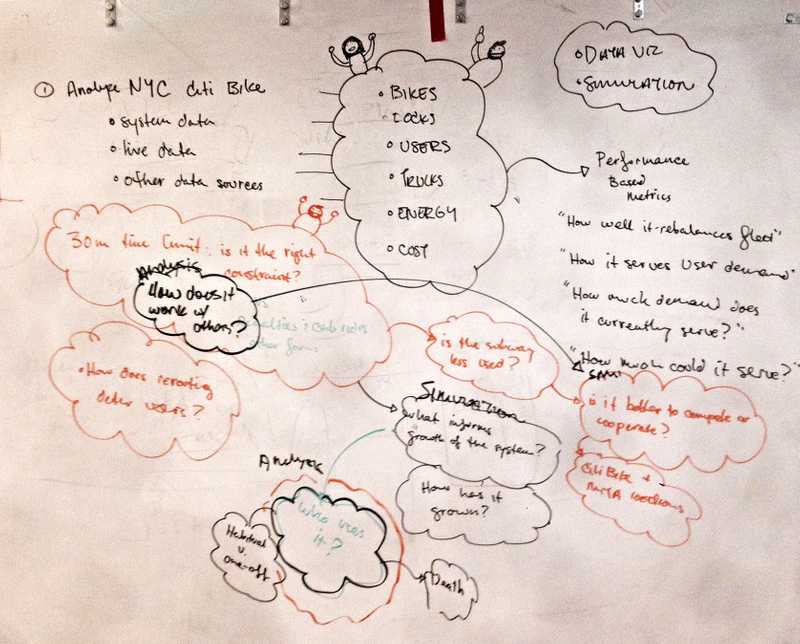 ① Analyze NYC Citi Bike
• system data
• live data
• other data sources
• BIKES
• DOCKS
• USERS
• TRUCKS
• ENERGY
• COST
• DATA VIZ
• SIMULATION
Performance
Based
Metrics
"How well it rebalances fleet"
"How it serves user demand"
"How much demand does
it currently serve?"
"How much could it serve?"
30m time limit: is it the right
constraint?
Analysis
How does it
work w/
others?
other forms
• How does rerouting
deter users?
is the subway
less used?
is it better to compete or
cooperate?
Citi Bike +
MTA
SIMULATION
what informs
growth of the system?
How has it
grown?
Analysis
Who uses
it?
Habitual
v.
one-off
Death